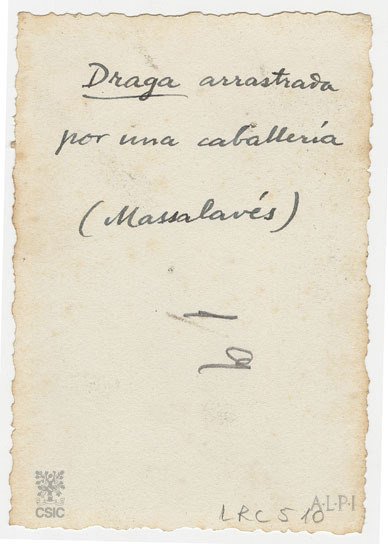 Draga arrastrada
por una caballería
(Massalavés)
CSIC
A·L·P·I
LRC 510